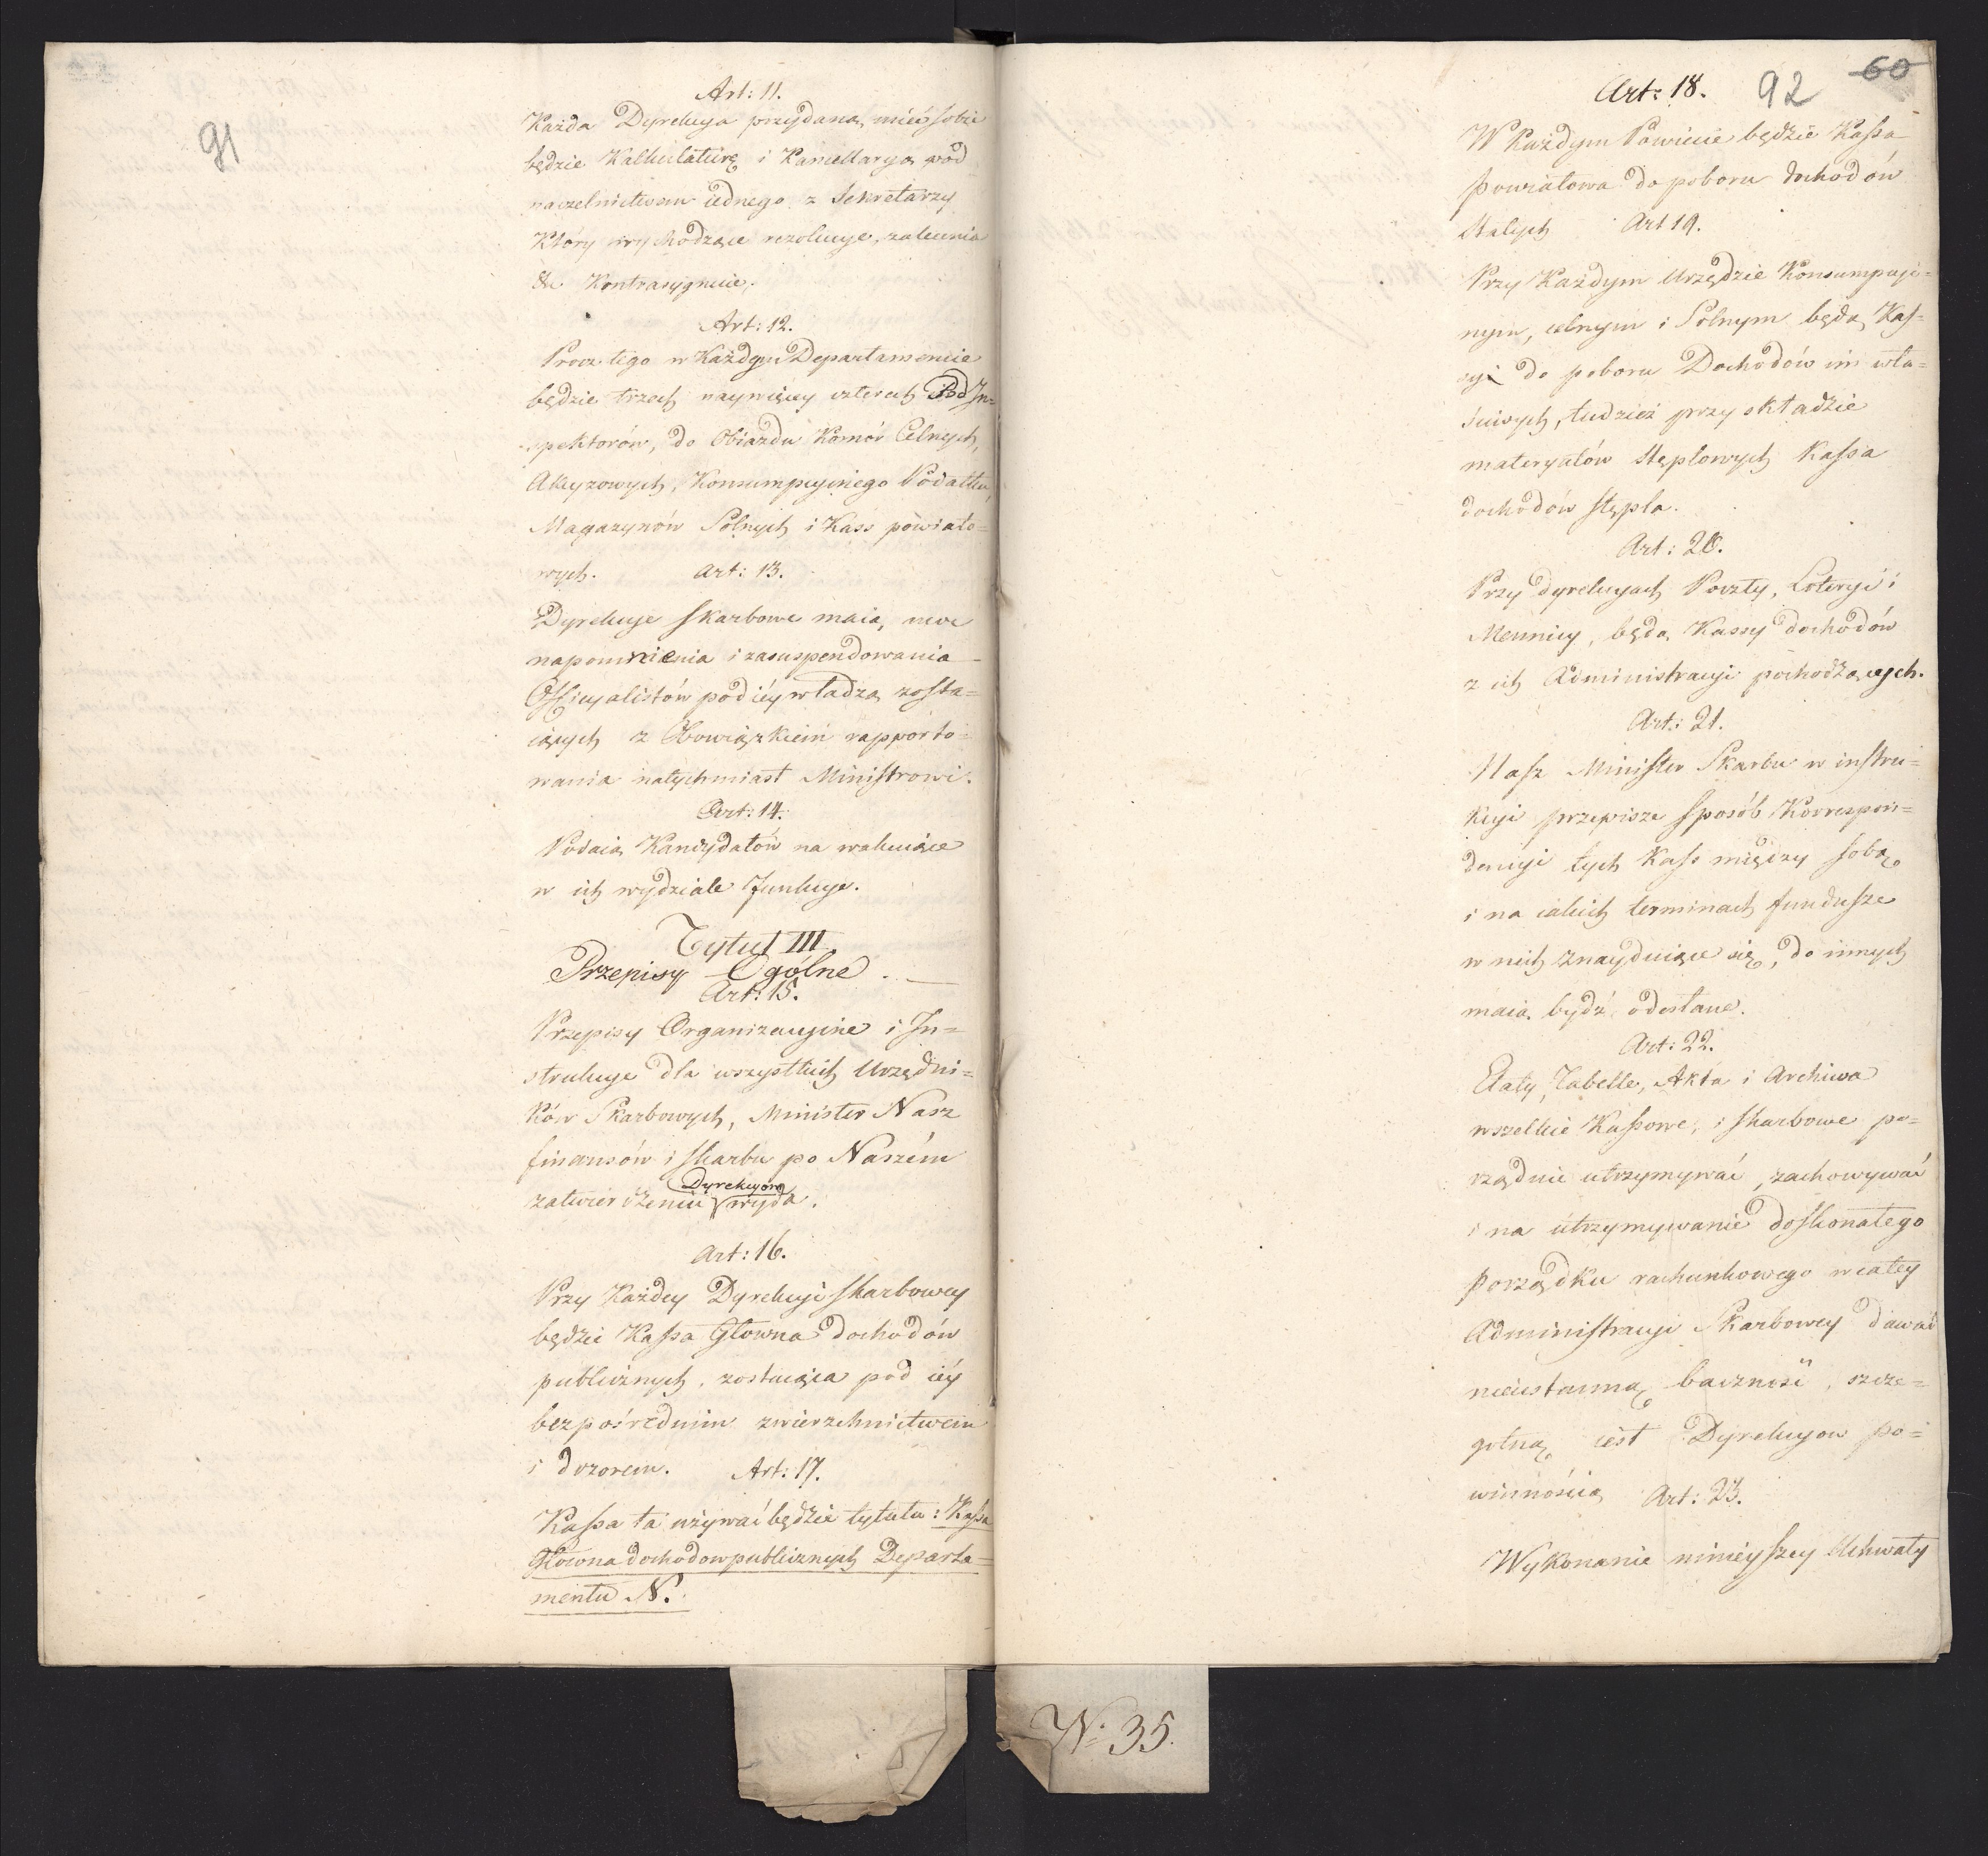 91
Art: 11.
Każda Dyrekcya przydaną mieć sobie
będzie Kalkulaturę i Kancellaryą pod
naczelnictwem iednego z Sekretarzy
Który wychodzące rezolucye, załatwia
Kontrasygnuie.
Art: 12.
Procz tego w Każdym Departamencie
będzie trzech naywięcy czterech Pod In=
spektorów, do Obiazdu Komór Celnych,
Akcyzowych, Konsumpcyinego Podatku,
Magazynów Solnych i Kass powiato=
wych. Art: 13.
Dyrekcye skarbowe maią moc
napomnienia i zasuspendowania
Officyalistów pod iéy władzą zosta=
iących z Obowiązkiem rapporto=
wania natychmiast Ministrowi.
Art: 14.
Podaią Kandydatów na wakuiące
w ich wydziale funkcye.
Tytuł III
Przepisy Ogólne.
Art: 15.
Przepisy Organizacyine i In=
strukcye dla wszystkich Urzędni=
ków Skarbowych, Minister Nasz
finansów i skarbu po Naszém
Dyrekcyom
zatwierdzeniu wyda.
Art: 16.
Przy Każdey Dyrekcyi skarbowey
będzie Kassa Główna dochodów
publicznych, zostaiąca pod iéy
bezpośrednim zwierzchnictwem
i dozorem. Art: 17.
Kassa ta używać będzie tytułu: Kassa
Głowna dochodow publicznych Departa=
mentu N.
60
92
Art: 18.
W Każdym Powiecie będzie Kassa
powiatowa do poboru dochodów
Stałych Art 19.
Przy Każdym Urzędzie Konsumpcyi=
nym, celnym i Solnym będą Kas=
sy do poboru Dochodów im wła=
ściwych, tudzież przy składzie
materyałów stęplowych Kassa
dochodów stępla.
Art: 20.
Przy dyrekcyach Poczty, Loteryi i
Mennicy, będą Kassy dochodów
z ich Administracyi pochodzących.
Art: 21.
Nasz Minister Skarbu w instru=
kcyi przepisze sposób Korrespon=
dencyi tych Kass między sobą
i na iakich terminach fundusze
w nich znayduiące się, do innych
maią bydź odesłane.
Art: 22.
Etaty, Tabelle, Akta i Archiwa
wszelkie Kassowe, i skarbowe po=
rządnie utrzymywać, zachowywać
i na utrzymywanie doskonałego
porządku rachunkowego w całey
Administracyi Skarbowey dawać
nieustanną baczność, szcze=
gólną iest Dyrekcyow po=
winnością Art: 23.
Wykonanie ninieyszey Uchwały
N: 35.